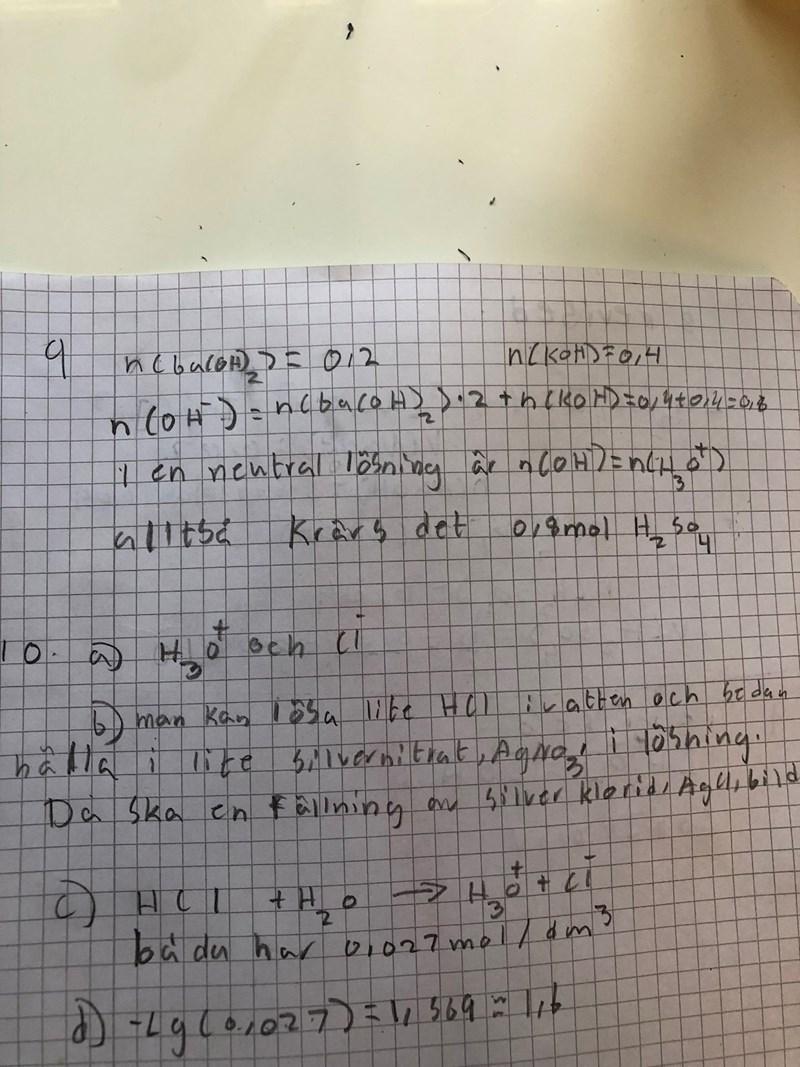 9 n(ba(OH)₂) = 0,2 n(KOH)=0,4
n(OH⁻) = n(ba(OH)₂)·2 + n(KOH)=0,4+0,4=0,8
i en neutral lösning är n(OH⁻)=n(H₃O⁺)
alltså krävs det 0,8mol H₂SO₄
10. a) H₃O⁺ och Cl⁻
b) man kan lösa lite HCl i vatten och sedan
hälla i lite silvernitrat, AgNO₃, i lösning.
Då ska en fällning av silverklorid, AgCl, bild
c) HCl + H₂O → H₃O⁺ + Cl⁻
båda har 0,027 mol/dm³
d) -Lg(0,027) = 1,569 ≈ 1,6